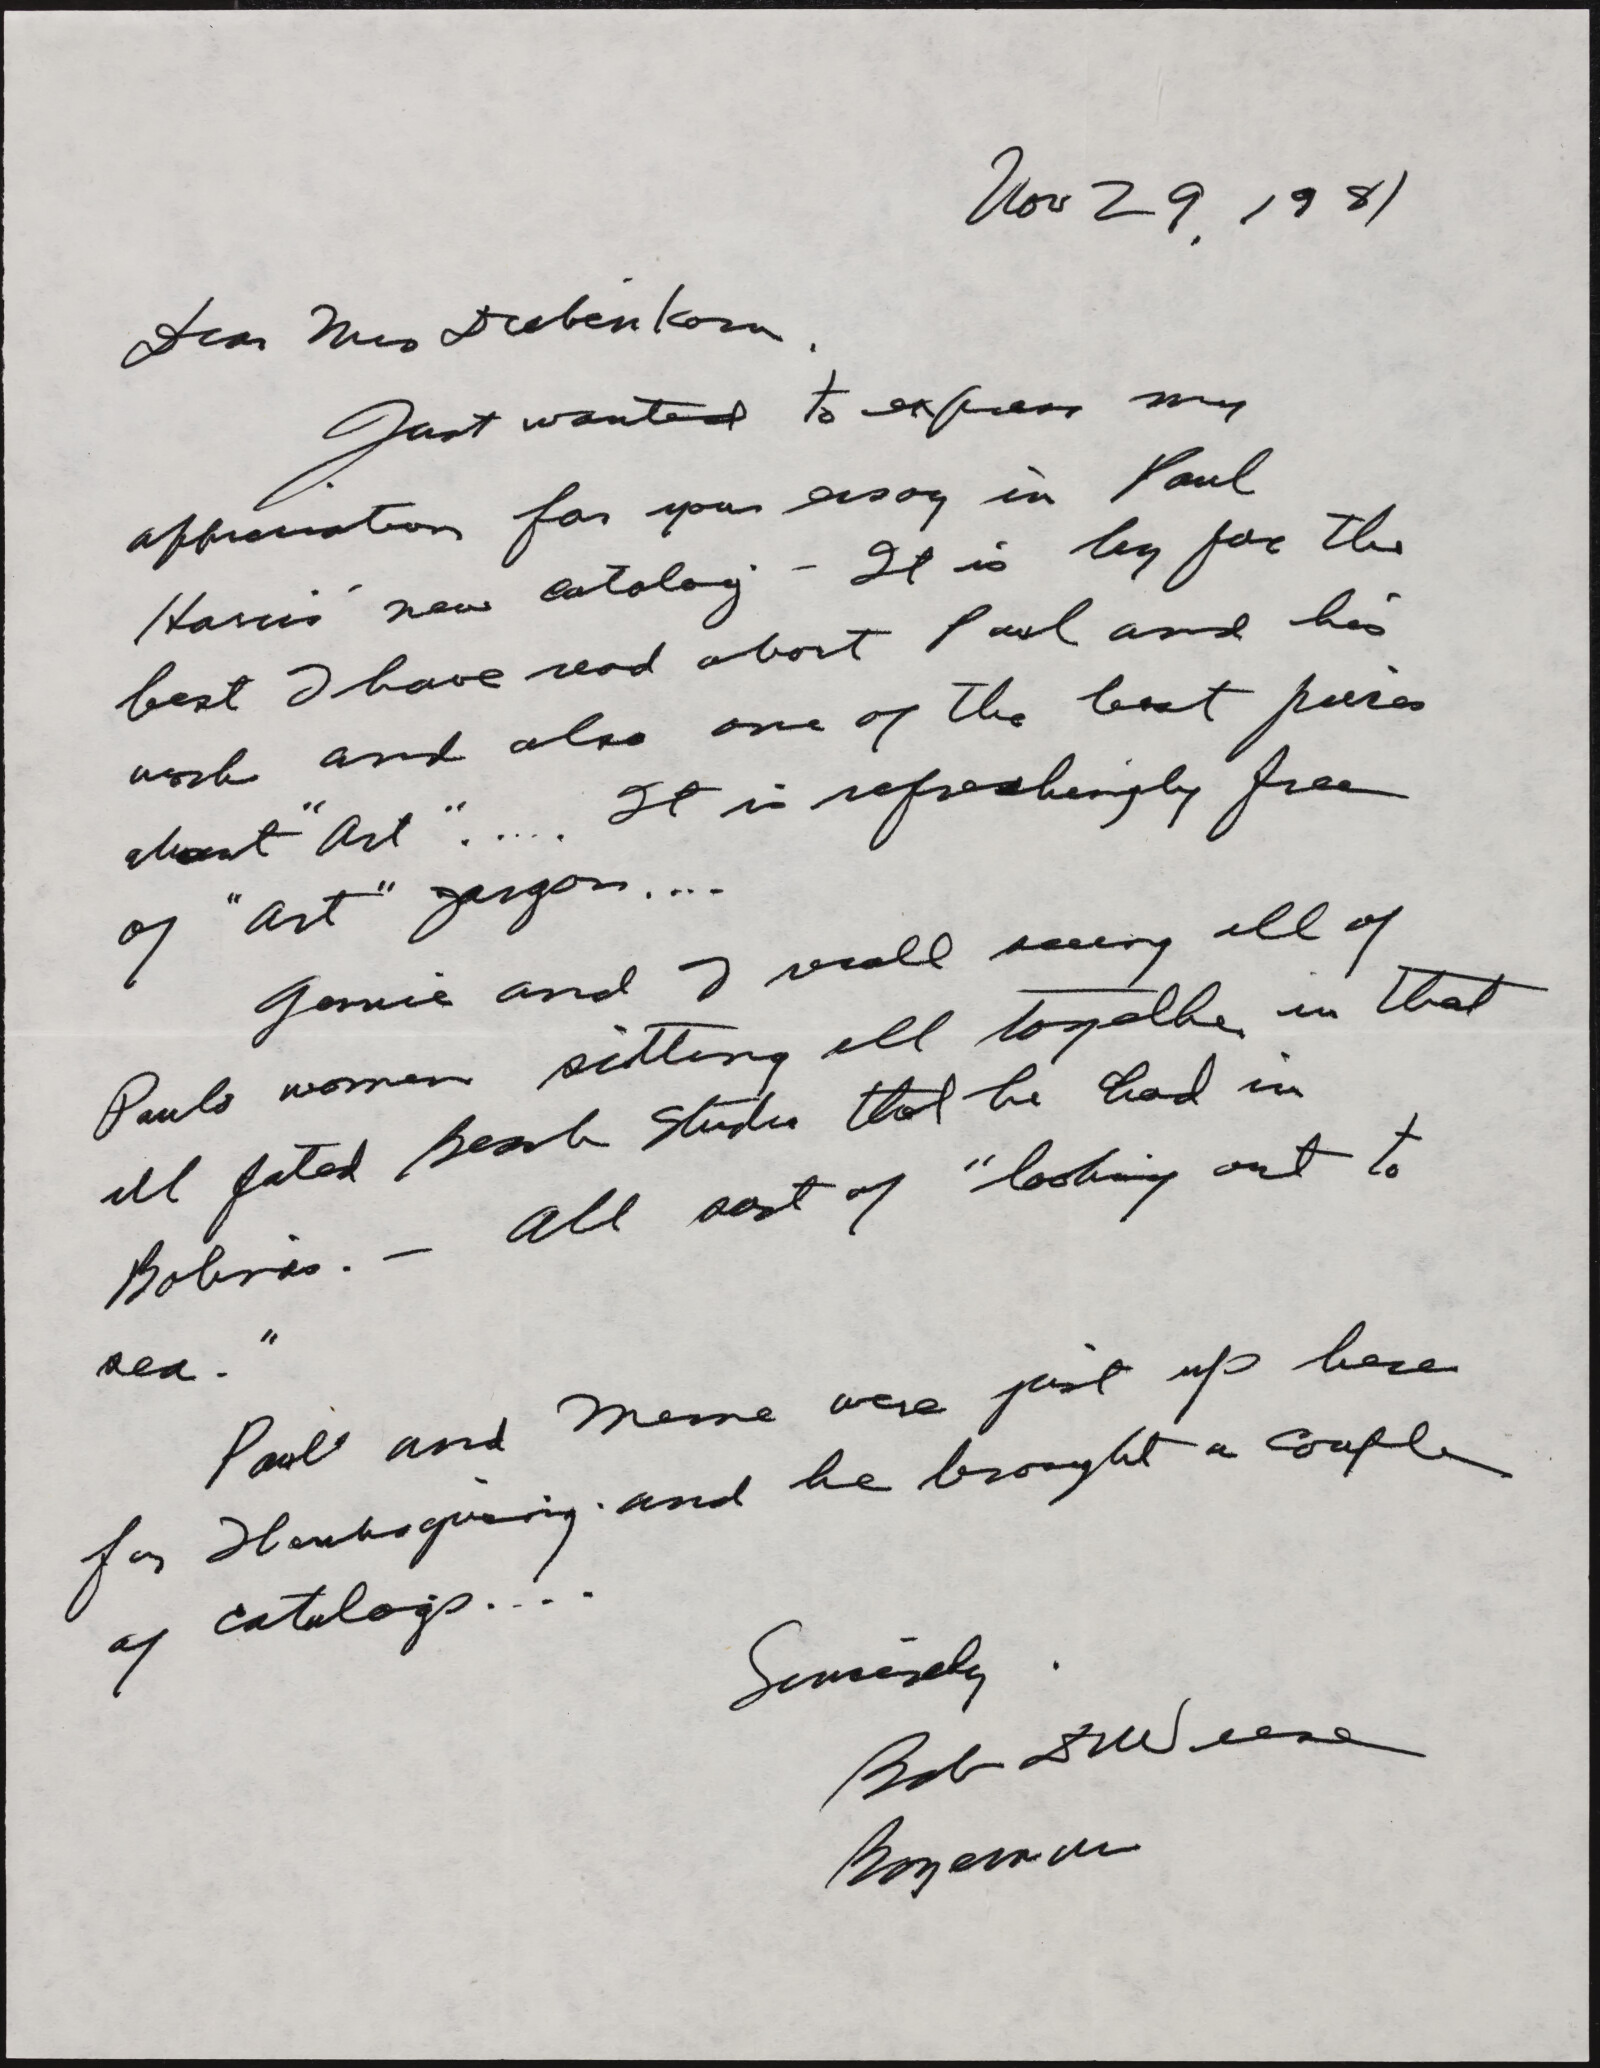 Nov 29, 1981
Dear Mrs Diebenkorn,
Just wanted to express my
appreciation for your essay in Paul
Harris' new catalog - It is by far the
best I have read about Paul and his
work and also one of the best pieces
about "Art"..... It is refreshingly free
of "Art" jargon....
Gennie and I recall seeing all of
Pauls women sitting all together in that
ill fated Beach Studio that he had in
Bolinas. - All sort of "looking out to
sea."
Paul and Meme were just up here
for Thanksgiving. and he brought a couple
of catalogs....
Sincerely.
Bob DeWeese
Bozeman